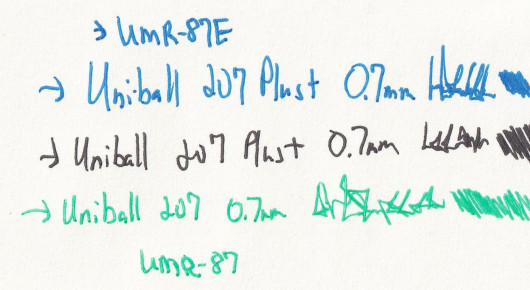 → UMR-87E
→ Uniball 207 Plus+ 0.7mm
→ Uniball 207 Plus+ 0.7mm
→ Uniball 207 0.7mm
UMR-87